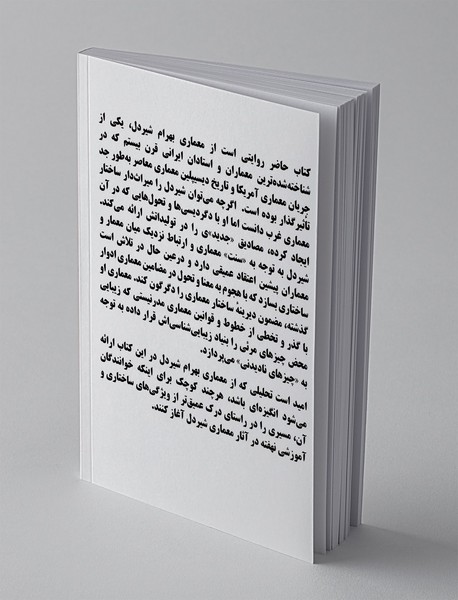 کتاب حاضر روایتی است از معماری بهرام شیردل، یکی از
شناخته‌شده‌ترین معماران و استادان ایرانی قرن بیستم که در
جریان معماری آمریکا و تاریخ دیسیپلین معماری معاصر به‌طور جد
تأثیرگذار بوده است. اگرچه می‌توان شیردل را میراث‌دار ساختار
معماری غرب دانست اما او با دگردیسی‌ها و تحول‌هایی که در آن
ایجاد کرده، مصادیق «جدید»ی را در تولیداتش ارائه می‌کند.
شیردل به توجه به «سنت» معماری و ارتباط نزدیک میان معمار و
معماران پیشین اعتقاد عمیقی دارد و درعین حال در تلاش است
ساختاری بسازد که با هجوم به معنا و تحول در مضامین معماری ادوار
گذشته، مضمون دیرینهٔ ساختار معماری را دگرگون کند. معماری او
با گذر و تخطی از خطوط و قوانین معماری مدرنیستی که زیبایی
محض چیزهای مرئی را بنیاد زیبایی‌شناسی‌اش قرار داده به توجه
به «چیزهای نادیدنی» می‌پردازد.
امید است تحلیلی که از معماری بهرام شیردل در این کتاب ارائه
می‌شود انگیزه‌ای باشد، هرچند کوچک برای اینکه خوانندگان
آن، مسیری را در راستای درک عمیق‌تر از ویژگی‌های ساختاری و
آموزشی نهفته در آثار معماری شیردل آغاز کنند.